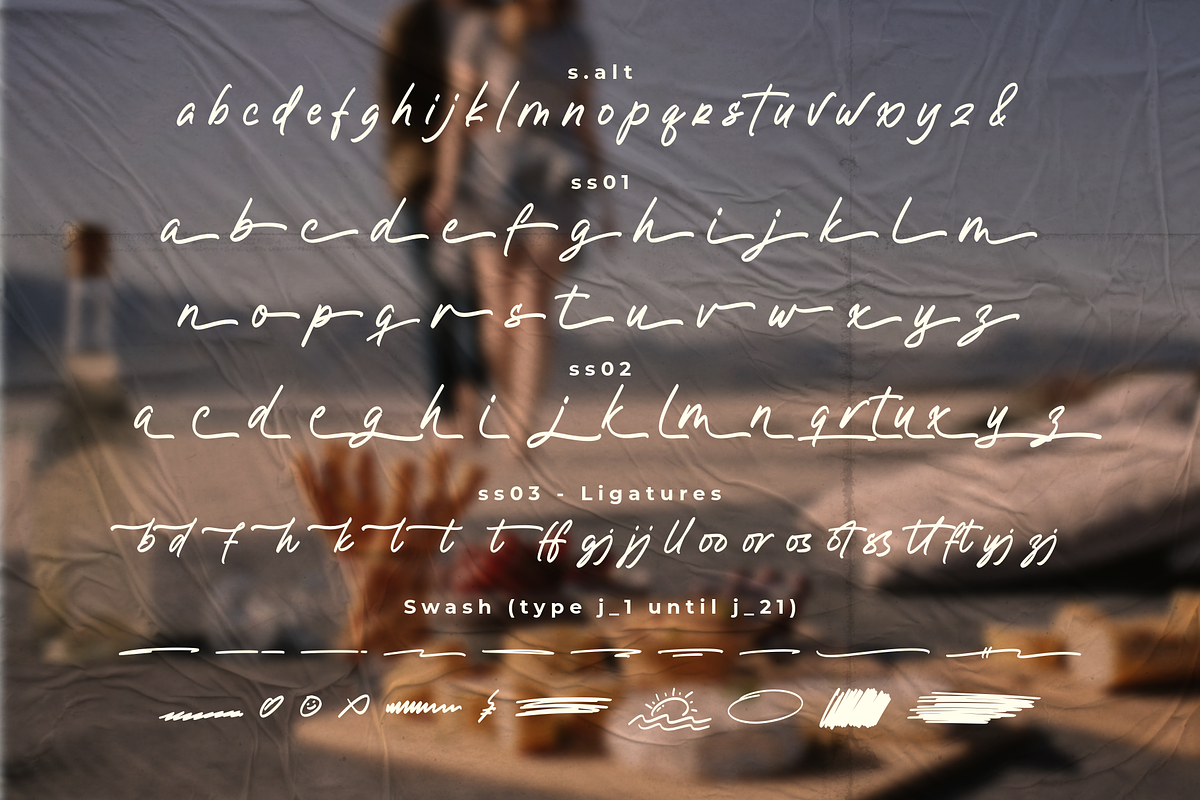 s.alt
a b c d e f g h i j k l m n o p q r s t u v w x y z &
ss01
a b c d e f g h i j k l m
n o p q r s t u v w x y z
ss02
a c d e g h i j k l m n q r t u x y z
ss03 - Ligatures
b d f h k l t t ff gj jj ll oo or os ot ss tt ft yj zj
Swash (type j_1 until j_21)